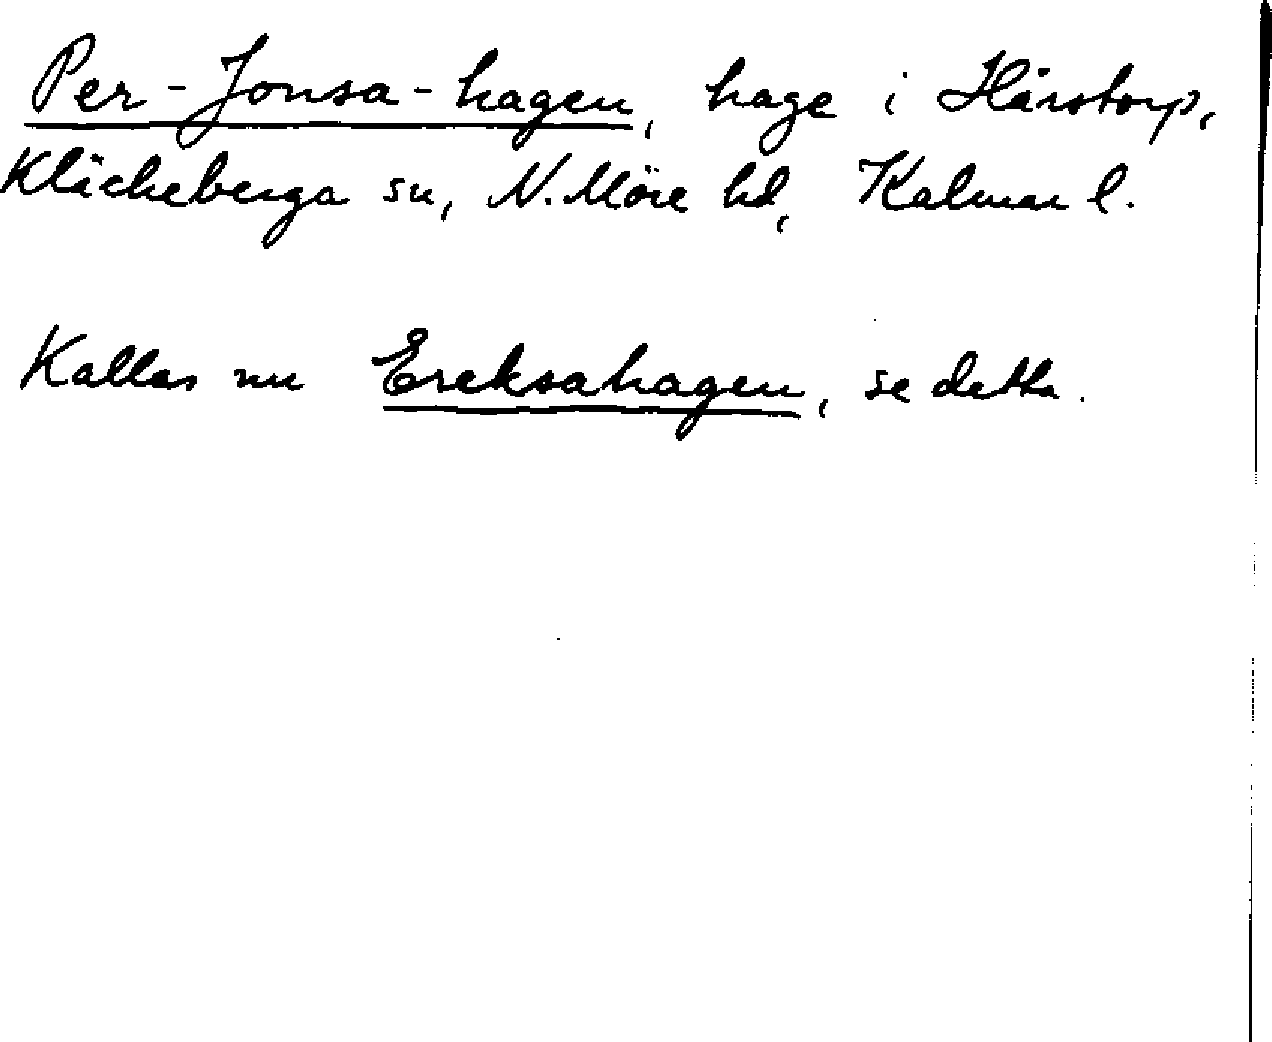 Per-Jonsa-hagen, hage i Hårstorp,
Kläckeberga sn, N. Möre hd, Kalmar l.
Kallas nu Ereksahagen, se detta.